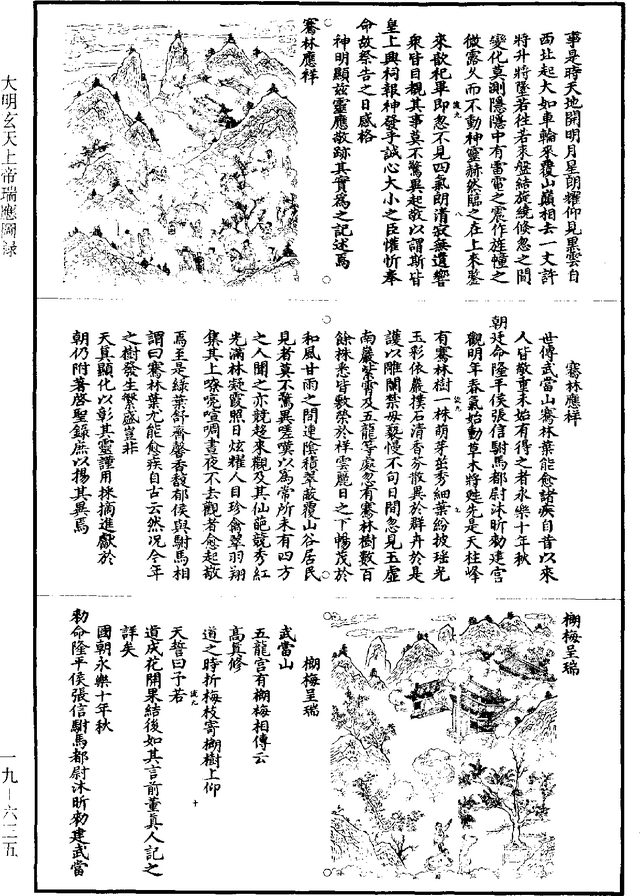 事是時天地開明月星朗耀仰見黑雲自
西北起大如車輪來覆山巔相去一丈許
將升將墜若往若來盤結旋繞倏忽之間
變化莫測隱隱中有雷電之震作旌幢之
微露久而不動神靈赫然臨之在上來鑒
來歆祀畢即忽不見四氣朗清寂無遺響
衆皆目覩其事莫不驚異起敬以謂斯皆
皇上興祠報神發乎誠心大小之臣懽忻奉
命故祭告之日感格
神明顯玆靈應敬跡其實爲之記述焉
騫林應祥
騫林應祥
世傳武當山騫林葉能愈諸疾自昔以來
人皆敬重未始有得之者永樂十年秋
朝廷命隆平侯張信駙馬都尉沐昕勑建宮
觀明年春氣始動草木將甦先是天柱峰
有騫林樹一株萌芽茁秀細葉紛披瑶光
玉彩依巖撲石清香芬散異於群卉於是
護以雕闌禁毋褻慢不旬日間忽見玉虛
南巖紫霄及五龍等處忽有騫林樹數百
餘株悉皆敷榮於祥雲麗日之下暢茂於
和風甘雨之間連陰積翠蔽覆山谷居民
見者莫不驚異嗟嘆以爲常所未有四方
之人聞之亦競趍來觀及其仙葩競秀紅
光滿林凝霞照日炫耀人目珍禽翠羽翔
集其上嘹喨喧啁晝夜不去觀者愈起敬
焉至是綠葉舒齊馨香馥郁侯與駙馬相
謂曰騫林葉尤能愈疾自古云然况今年
之樹發生繁盛豈非
天真顯化以彰其靈謹用採摘進獻於
朝仍附著啓聖錄庶以揚其異焉
榔梅呈瑞
榔梅呈瑞
武當山
五龍宮有榔梅相傳云
高真修
道之時折梅枝寄榔樹上仰
天誓曰予若
道成花開果結後如其言前董真人記之
詳矣
國朝永樂十年秋
勑命隆平侯張信駙馬都尉沐昕勑建武當
大明玄天上帝瑞應圖錄
一九－六三五